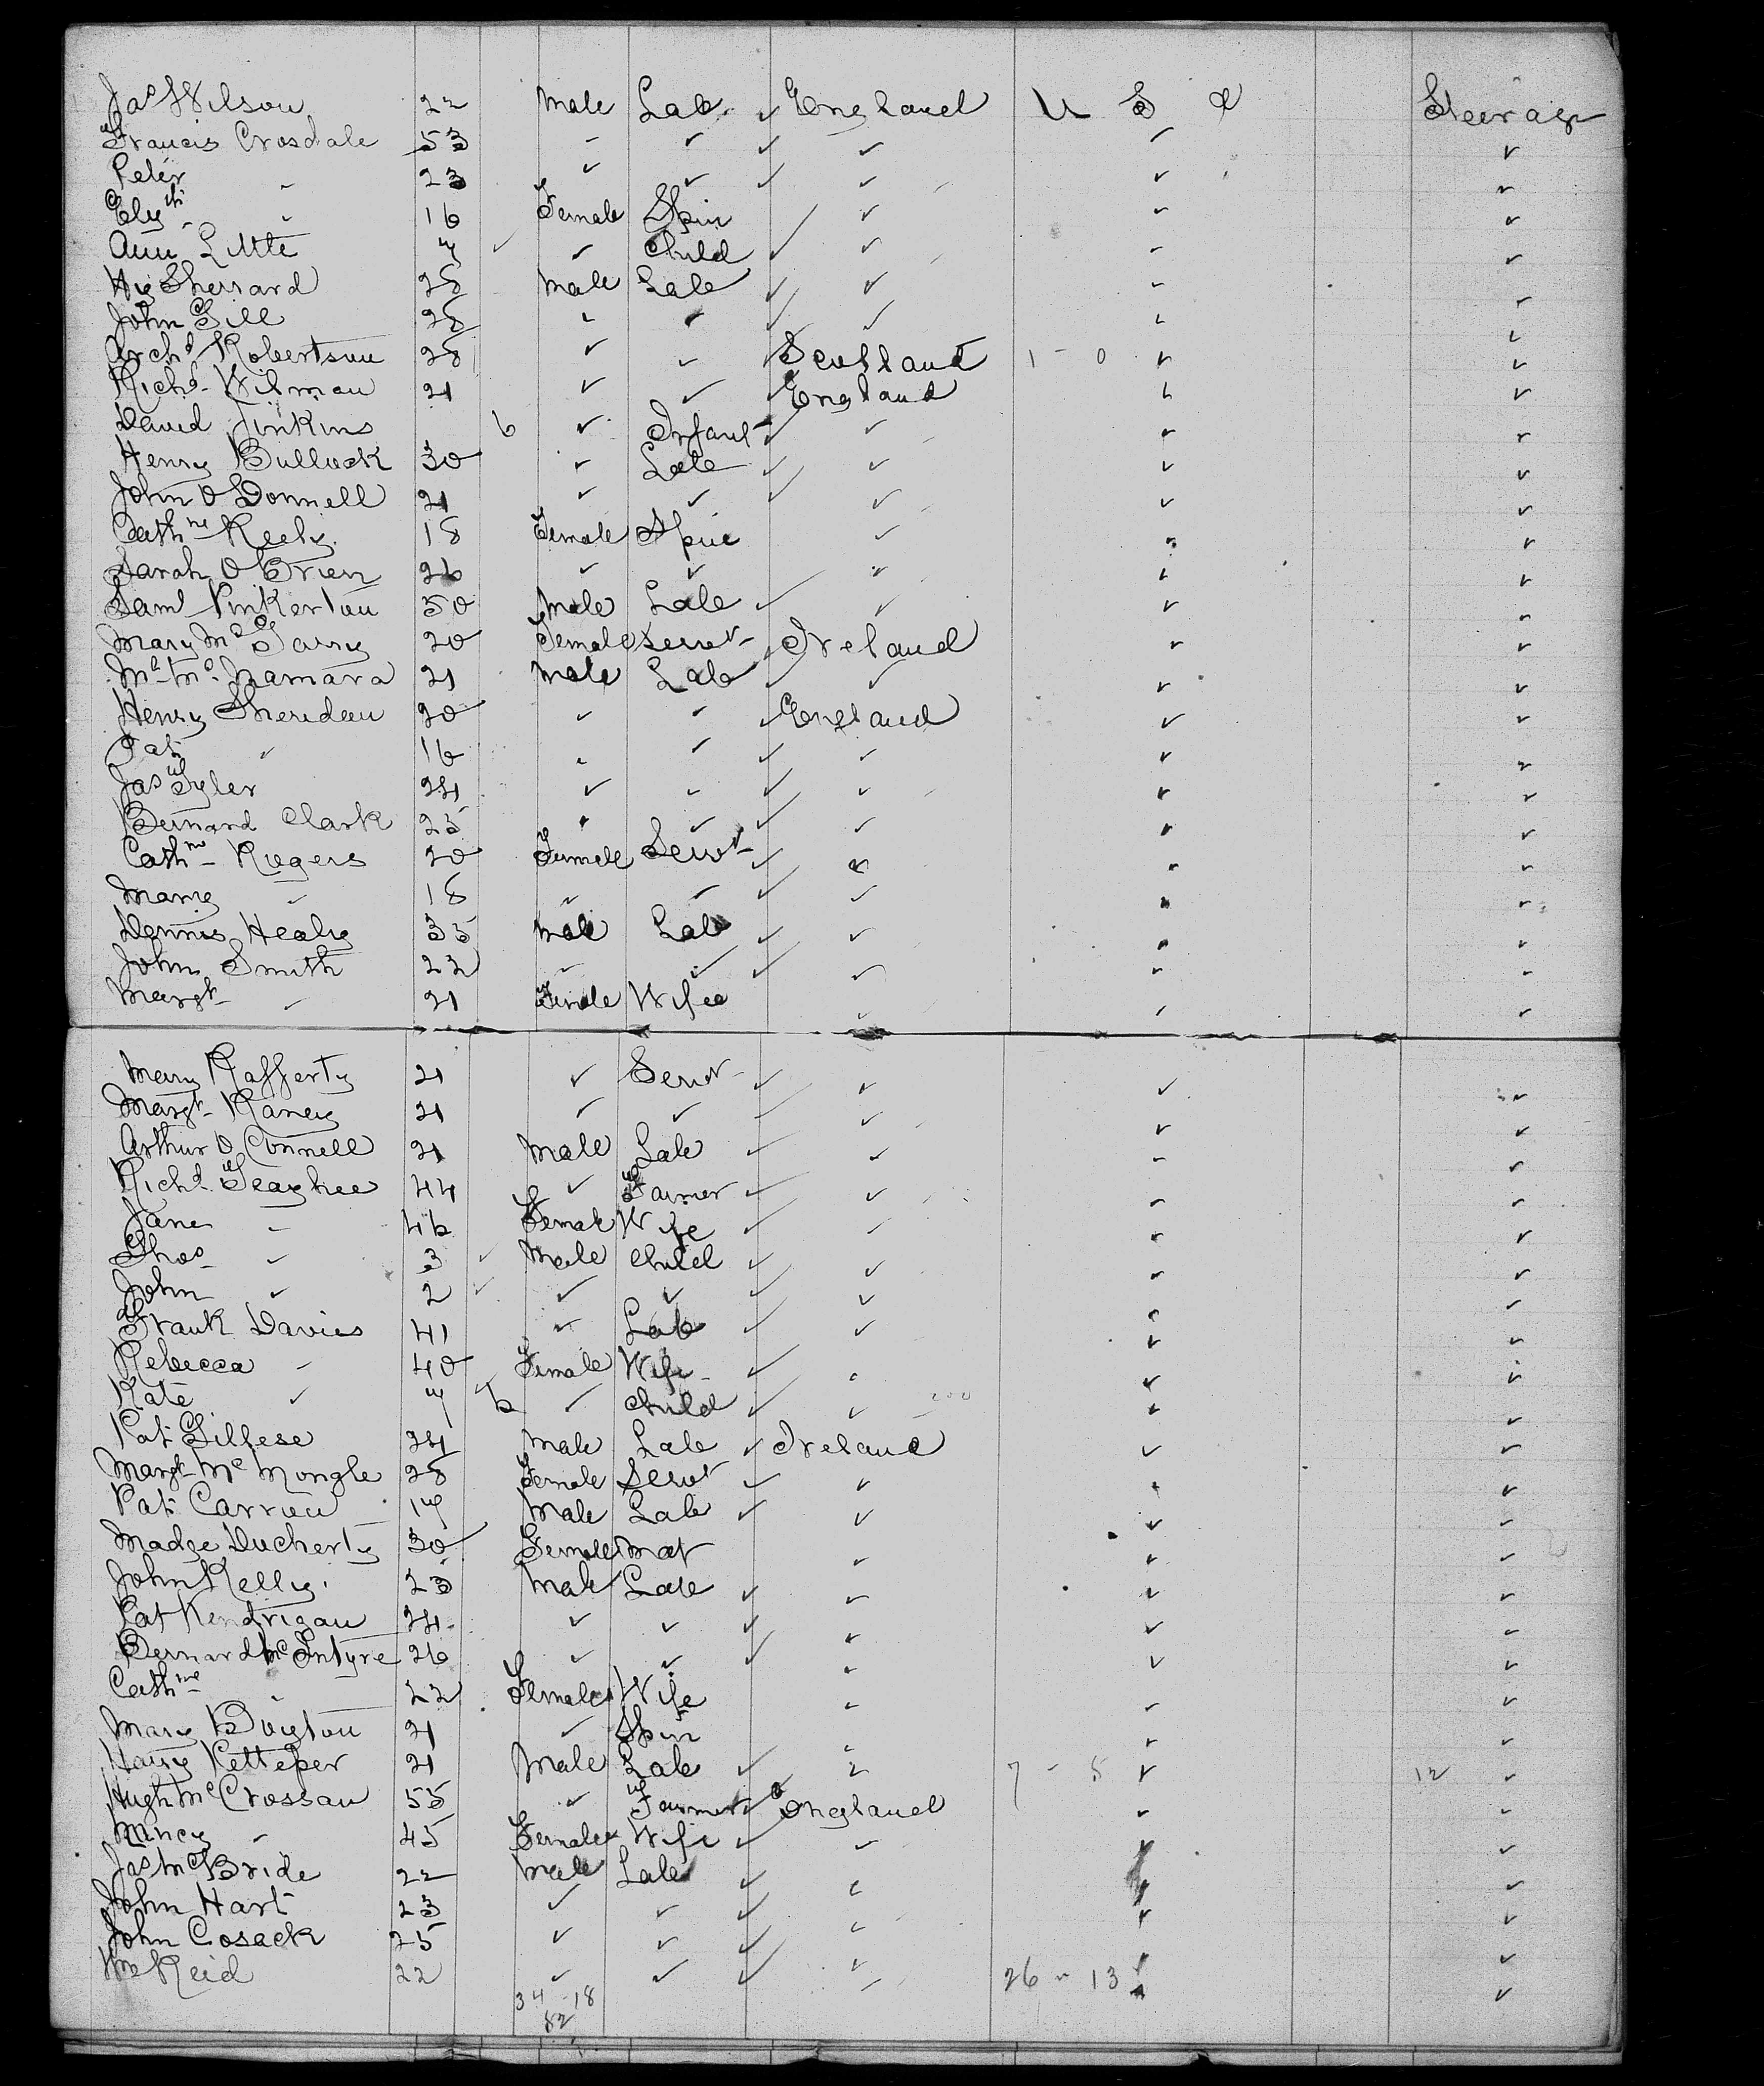 Jas Wilson 22 Male Lab ✓ England U S A Steerage
Francis Crosdale 53 " ✓ ✓ ✓ ✓ ✓
Peter " 23 ✓ ✓ ✓ ✓ ✓ ✓
Elizth " 16 Female Spin ✓ ✓ ✓ ✓
Ann Little 7 ✓ ✓ Child ✓ ✓ ✓ ✓
Hy Sherrard 28 Male Lab ✓ ✓ ✓ ✓
John Gill 28 ✓ ✓ ✓ ✓ ✓ ✓
Archd Robertson 28 ✓ ✓ Scotland 1 - 0 ✓ ✓
Richd Wilman 21 ✓ ✓ England ✓ ✓
David Jinkins 6 ✓ Infant ✓ ✓ ✓ ✓
Henry Bullock 30 ✓ Lab ✓ ✓ ✓ ✓
John O Donnell 21 ✓ ✓ ✓ ✓ ✓ ✓
Cathne Keely 18 Female Spin ✓ ✓ ✓
Sarah O Brien 26 ✓ ✓ ✓ ✓ ✓
Saml Pinkerton 50 Male Lab ✓ ✓ ✓ ✓
Mary Mc Garry 20 Female Servt Ireland ✓ ✓
Ml Mc Namara 21 Male Lab ✓ ✓ ✓ ✓
Henry Sheridan 20 ✓ ✓ ✓ England ✓ ✓
Pat ✓ 16 ✓ ✓ ✓ ✓ ✓ ✓
Jas Tyler 24 ✓ ✓ ✓ ✓ ✓ ✓
Bernard Clark 25 ✓ ✓ ✓ ✓ ✓ ✓
Cathne Rogers 20 Female Servt ✓ ✓ ✓ ✓
Mary ✓ 18 ✓ ✓ ✓ ✓ ✓ ✓
Dennis Healy 35 Male Lab ✓ ✓ ✓ ✓
John Smith 22 ✓ ✓ ✓ ✓ ✓ ✓
Margt ✓ 21 Female Wife ✓ ✓ ✓
Mary Rafferty 21 ✓ Servt ✓ ✓ ✓ ✓
Margt Raney 21 ✓ ✓ ✓ ✓ ✓ ✓
Arthur O Connell 21 Male Lab ✓ ✓ ✓ ✓
Richd 44 ✓ Farmer ✓ ✓ ✓ ✓
Jane ✓ 46 Female Wife ✓ ✓ ✓ ✓
Thos ✓ 3 ✓ Male Child ✓ ✓ ✓ ✓
John ✓ 2 ✓ ✓ ✓ ✓ ✓ ✓ ✓
Frank Davies 41 ✓ Lab ✓ ✓ ✓ ✓
Rebecca ✓ 40 Female Wife ✓ ✓ ✓ ✓
Kate ✓ 7 ✓ ✓ Child ✓ ✓ ✓ ✓
Pat Gillese 24 Male Lab ✓ Ireland ✓ ✓
Margt Mc Mongle 28 Female Servt ✓ ✓ ✓ ✓
Pat 17 Male Lab ✓ ✓ ✓ ✓
Madge Ducherty 30 Female Mat ✓ ✓ ✓
John Kelly 23 Male Lab ✓ ✓ ✓ ✓
Pat Kendrigan 24 ✓ ✓ ✓ ✓ ✓ ✓
Bernard Mc Intyre 26 ✓ ✓ ✓ ✓ ✓ ✓
Cathne " 22 Female Wife ✓ ✓ ✓
Mary Boylan 21 ✓ Spin ✓ ✓ ✓
Harry 21 Male Lab ✓ ✓ 7 - 5 ✓ 12 ✓
Hugh Mc Crossan 55 ✓ Farmer ✓ England ✓ ✓
Nancy ✓ 45 Female Wife ✓ ✓ ✓ ✓
Jas Mc Bride 22 Male Lab ✓ ✓ ✓ ✓
John Hart 23 ✓ ✓ ✓ ✓ ✓ ✓
John Cosack 25 ✓ ✓ ✓ ✓ ✓ ✓
Wm Reid 22 ✓ ✓ ✓ ✓ 26 - 13 ✓ ✓
34 - 18
82